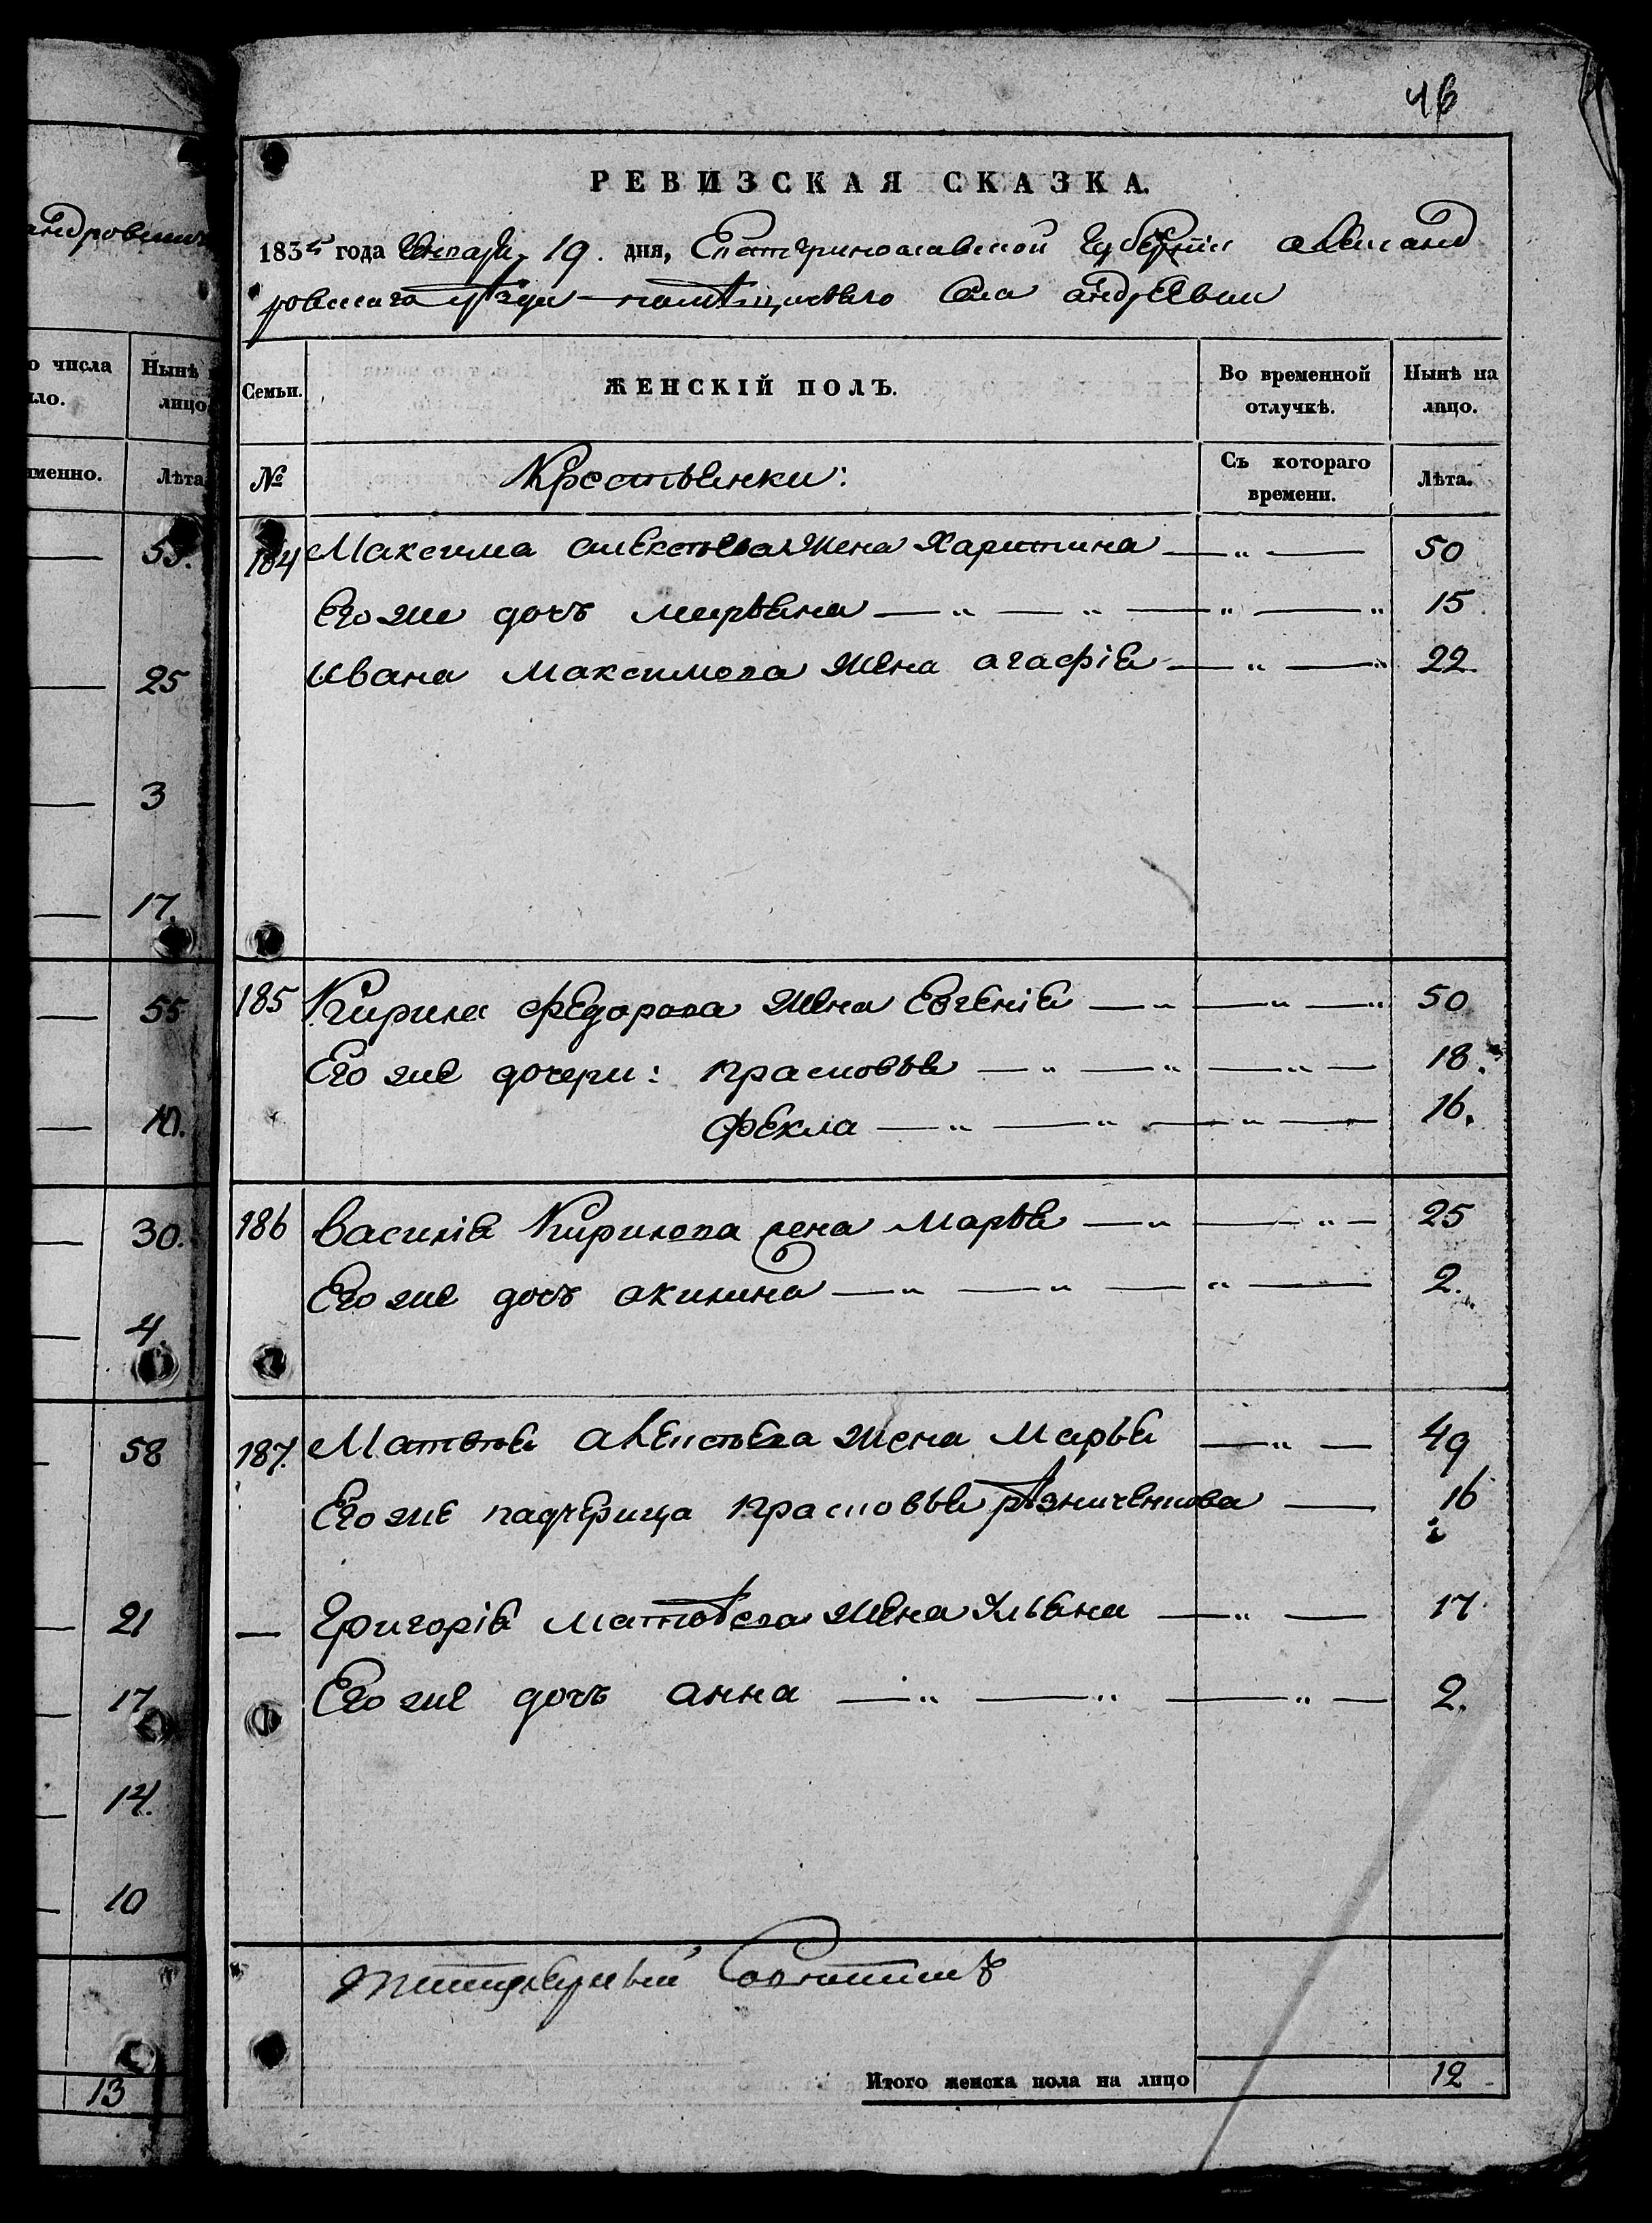 46
РЕВИЗСКАЯ СКАЗКА.
1835 года Генваря 19. дня, Екатеринославской Губерніи Александ
ровскаго уѣзда помѣщичьяго Села андрѣевки
Семьи.
ЖЕНСКІЙ ПОЛЪ.
Во временной отлучкѣ.
Нынѣ на лицо.
№
Крестьянки:
Съ котораго времени.
Лѣта.
184 Максима алексѣева жена Харитина — „ — 50
Его же дочь марьяна — „ — „ — „ — „ 15
Ивана Максимова жена агафія — „ — „ 22.
185 Кирила Федорова жена Евгенія — „ — „ — „ 50
Его же дочери: прасковья — „ — „ — „ — 18.
Фекла — „ — „ — „ — 16.
186 Василія Кирилова жена Марья — „ — „ — 25
Его же дочь акилина — „ — „ — „ — 2.
187. Матвѣя алексѣева жена Марья — „ — 49
Его же падчерица прасковья рѣзниченкова — 16
— Григорія матвѣева жена Ульяна — „ — 17
Его же дочь анна — „ — „ — „ — 2.
Итого женска пола на лицо 12
андровскаго
о числа
ло.
Нынѣ
лицо
именно.
Лѣта
53.
25
3
17.
55
10.
30.
4.
58
21
17
14.
10
13